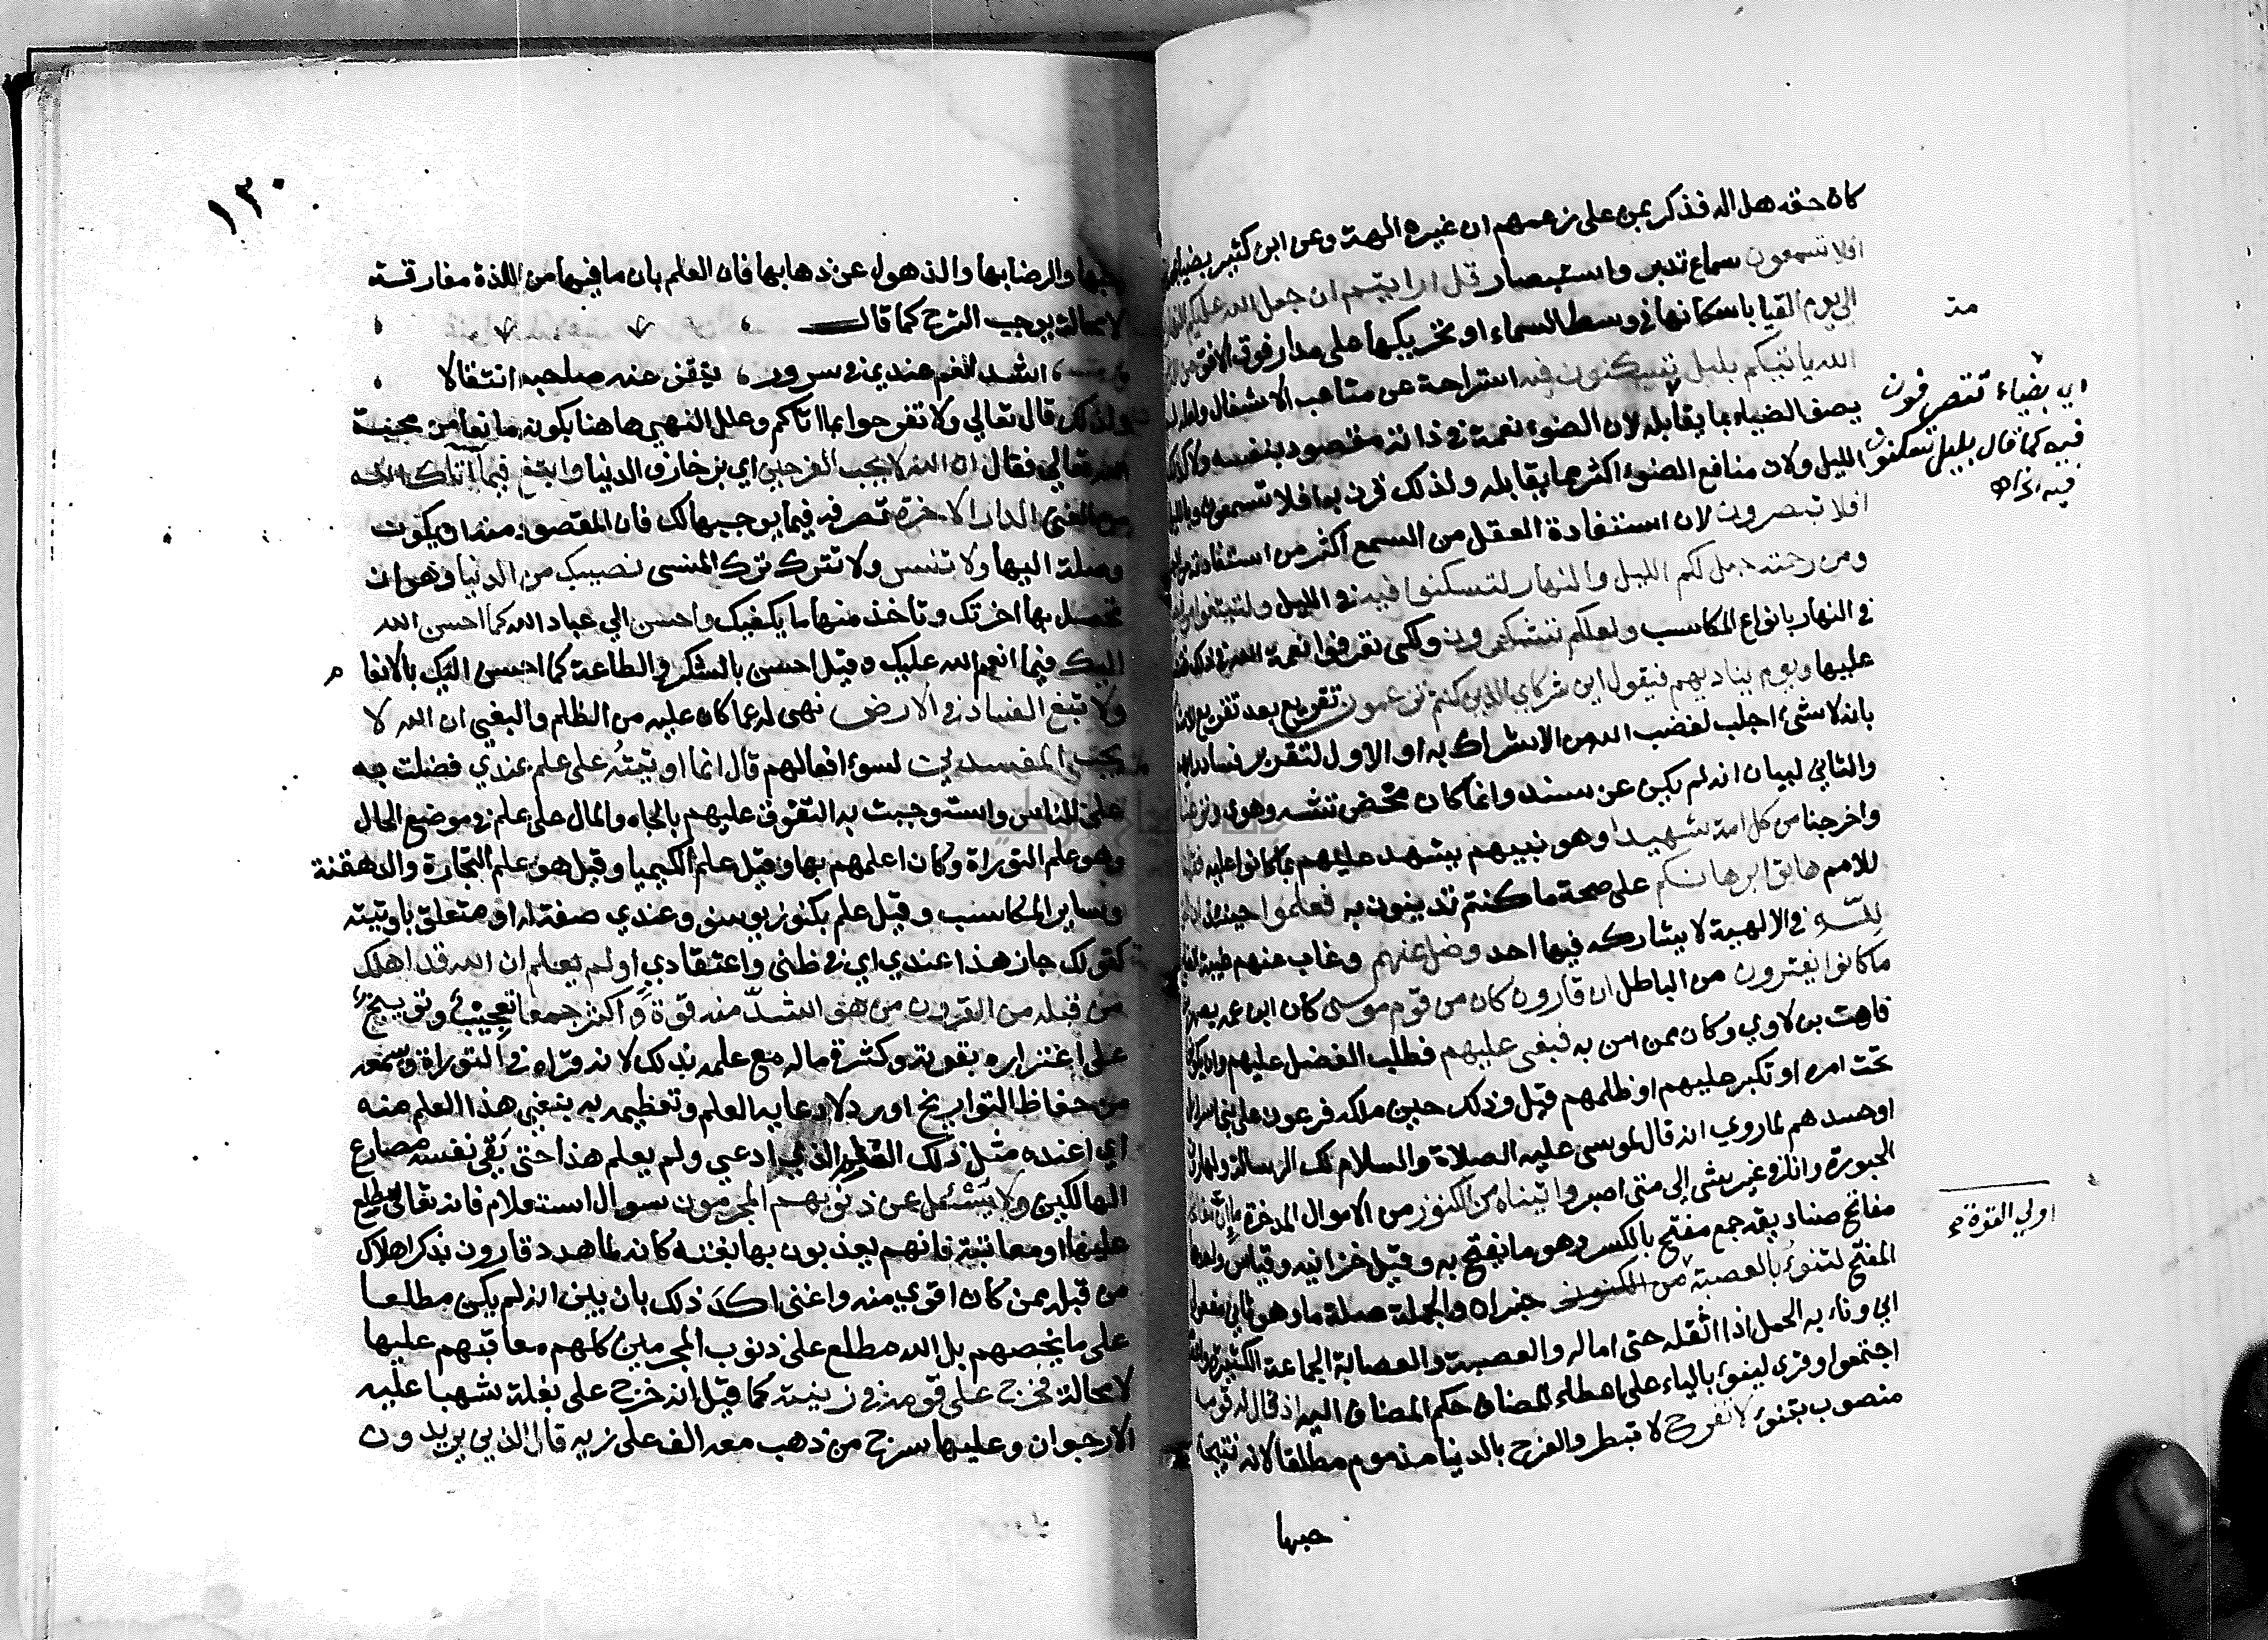 كان حقه هل اله فذكر بمن على زعمهم ان غيره الهة وعن ابن كثير بضياء
افلا تسمعون سماع تدبر واستبصار قل ارايتم ان جعل الله عليكم النهار
الي يوم القيا باسكانها في وسط السماء او تحريكها على مدار فوق الافق
الله ياتيكم بليل تسكنون فيه استراحة عن متاعب الاشغال ولعله لم
يصف الضياء بما يقابله لان الضوء نعمة في ذاته مقصود بنفسه ولا كذلك
الليل ولان منافع الضوء اكثر مما يقابله ولذلك قرن به افلا تسمعون وبالليل
افلا تبصرون لان استفادة العقل من السمع اكثر من استفادته من
ومن رحمته جعل لكم الليل والنهار لتسكنوا فيه في الليل ولتبتغوا من
في النهار بانواع المكاسب ولعلكم تشكرون ولكي تعرفوا نعمة الله في ذلك
عليها ويوم يناديهم فيقول اين شركاي الذين كنتم تزعمون تقريع بعد تقريع
بانه لا شئ اجلب لغضب الله من الاشراك به او الاول لتقرير فساد
والثاني لبيان انه لم يكن عن سند وانما كان محض تشه وهوى ونزعنا
واخرجنا من كل امة شهيدا وهو نبيهم يشهد عليهم بما كانوا عليه
للامم هاتوا برهانكم على صحة ما كنتم تدينون به فعلموا حينئذ
لله في الالهية لا يشاركه فيها احد وضل عنهم وغاب عنهم غيبة
ما كانوا يفترون من الباطل ان قارون كان من قوم موسى كان ابن عمه يصهر
قاهث بن لاوي وكان ممن امن به فبغى عليهم فطلب الفضل عليهم وان يكونوا
تحت امره او تكبر عليهم او ظلمهم قيل وذلك حين ملكه فرعون على بني اسرائيل
او حسدهم لما روي انه قال لموسى عليه الصلاة والسلام لك الرسالة ولهارون
الحبورة وانا في غير شئ الى متى اصبر واتيناه من الكنوز من الاموال المدخرة ما ان مفاتحه
مفاتح صناديقه جمع مفتح بالكسر وهو ما يفتح به وقيل خزاينه وقياس واحدها
المفتح لتنوء بالعصبة من الكنوز خبر ان والجملة صلة ما وهو ثاني مفعولي
اتي وناء به الحمل اذا اثقله حتى اماله والعصبة والعصابة الجماعة الكثيرة
اجتمعوا وقرئ لينوء بالياء على اعطاء المضاف حكم المضاف اليه اذ قال له قومه
منصوب بتنوء لا تفرح لا تبطر والفرح بالدنيا مذموم مطلقا لانه نتيجة
حبها
مت
اي بضياء تتصرفون
فيه كما قال بليل تسكنون
فيه
اولي القوة صح
١٣٠
حبها والرضا بها والذهول عن ذهابها فان العلم بان ما فيها من اللذة مفارقة
لا محالة يوجب الترح كما قال
اشد الغم عندي في سرور تيقن عنه صاحبه انتقالا
ولذلك قال تعالي ولا تفرحوا بما اتاكم وعلل النهي هاهنا بكونه مانعا من محبة
الله تعالي فقال ان الله لا يحب الفرحين اي بزخارف الدنيا وابتغ فيما اتاك الله
من الغنى الدار الاخرة تصرفه فيما يوجبها لك فان المقصود منه ان يكون
وصلة اليها ولا تنس ولا تترك ترك المنسى نصيبك من الدنيا وهو ان
تحصل بها اخرتك وتاخذ منها ما يكفيك واحسن الي عباد الله كما احسن الله
اليك فيما انعم الله عليك وقيل احسن بالشكر والطاعة كما احسن اليك بالانعام
ولا تبغ الفساد في الارض نهى له عما كان عليه من الظلم والبغي ان الله لا
يحب المفسدين لسوء افعالهم قال انما اوتيته على علم عندي فضلت به
على الناس واستوجبت به التفوق عليهم بالجاه والمال على علم في موضع الحال
وهو علم التوراة وكان اعلمهم بها وقيل علم الكيميا وقيل هو علم التجارة والدهقنة
وساير المكاسب وقيل علم بكنوز يوسف وعندي صفة له او متعلق باوتيته
كقولك جاز هذا عندي اي في ظني واعتقادي اولم يعلم ان الله قد اهلك
من قبله من القرون من هو اشد منه قوة واكثر جمعا تعجيب وتوبيخ
على اغتراره بقوته وكثرة ماله مع علمه بذلك لانه قراه في التوراة وسمعه
من حفاظ التواريخ او رد لادعايه العلم وتعظيمه به بنفي هذا العلم منه
اي اعنده مثل ذلك العلم الذي ادعي ولم يعلم هذا حتى يقي نفسه مصارع
الهالكين ولا يسئل عن ذنوبهم المجرمون سوال استعلام فانه تعالى مطلع
عليها او معاتبة فانهم يعذبون بها بغتة كانه لما هدد قارون بذكر اهلاك
من قبله ممن كان اقوي منه واغنى اكد ذلك بان بين انه لم يكن مطلعا
على ما يخصهم بل الله مطلع على ذنوب المجرمين كلهم معاقبهم عليها
لا محالة فخرج على قومه في زينته كما قيل انه خرج على بغلة شهبا عليه
الارجوان وعليها سرج من ذهب معه الف على زيه قال الذين يريدون